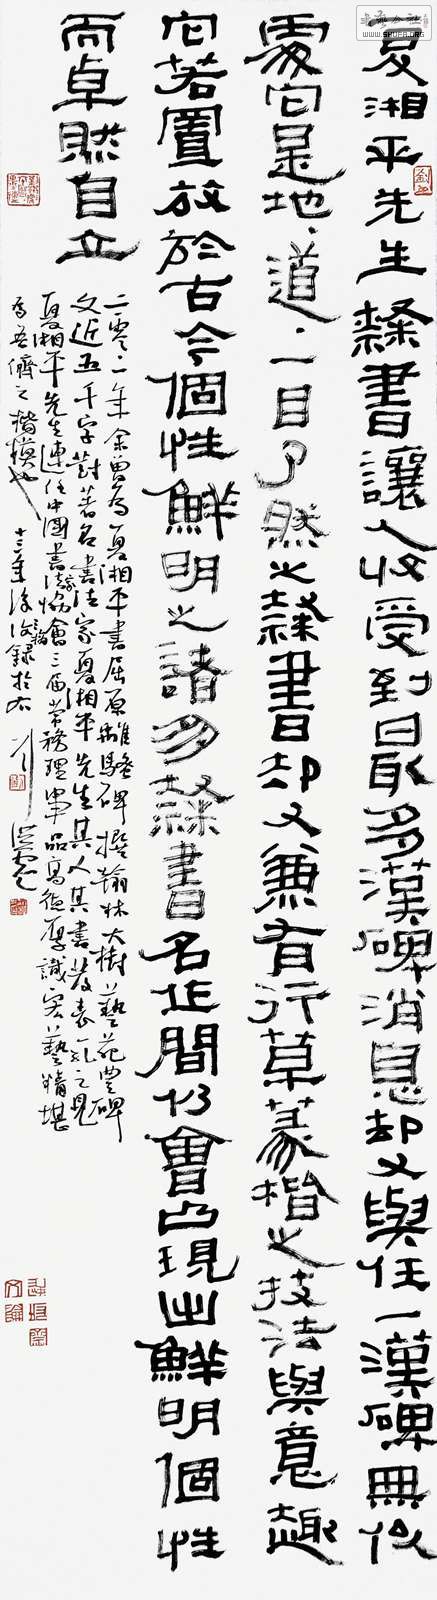 夏湘平先生隸書讓人收受到最多漢碑消息却又與任一漢碑無似
處它是地、道、一目了然之隸書却又兼有行草篆楷之技法與意趣
它若置放於古今個性鮮明之諸多隸書名作間仍會凸現出鮮明個性
而卓然自立
二零〻一年余曾爲夏湘平書屈原離騷碑撰翰林大樹藝苑豐碑
文近五千字對著名書法家夏湘平先生其人其書發表一孔之見
夏湘平先生連任中國書法家協會三屆常務理事品高德厚識宏藝精堪
爲吾儕之楷模也
錄於右
洪彪
WWW.SHUFA.ORG